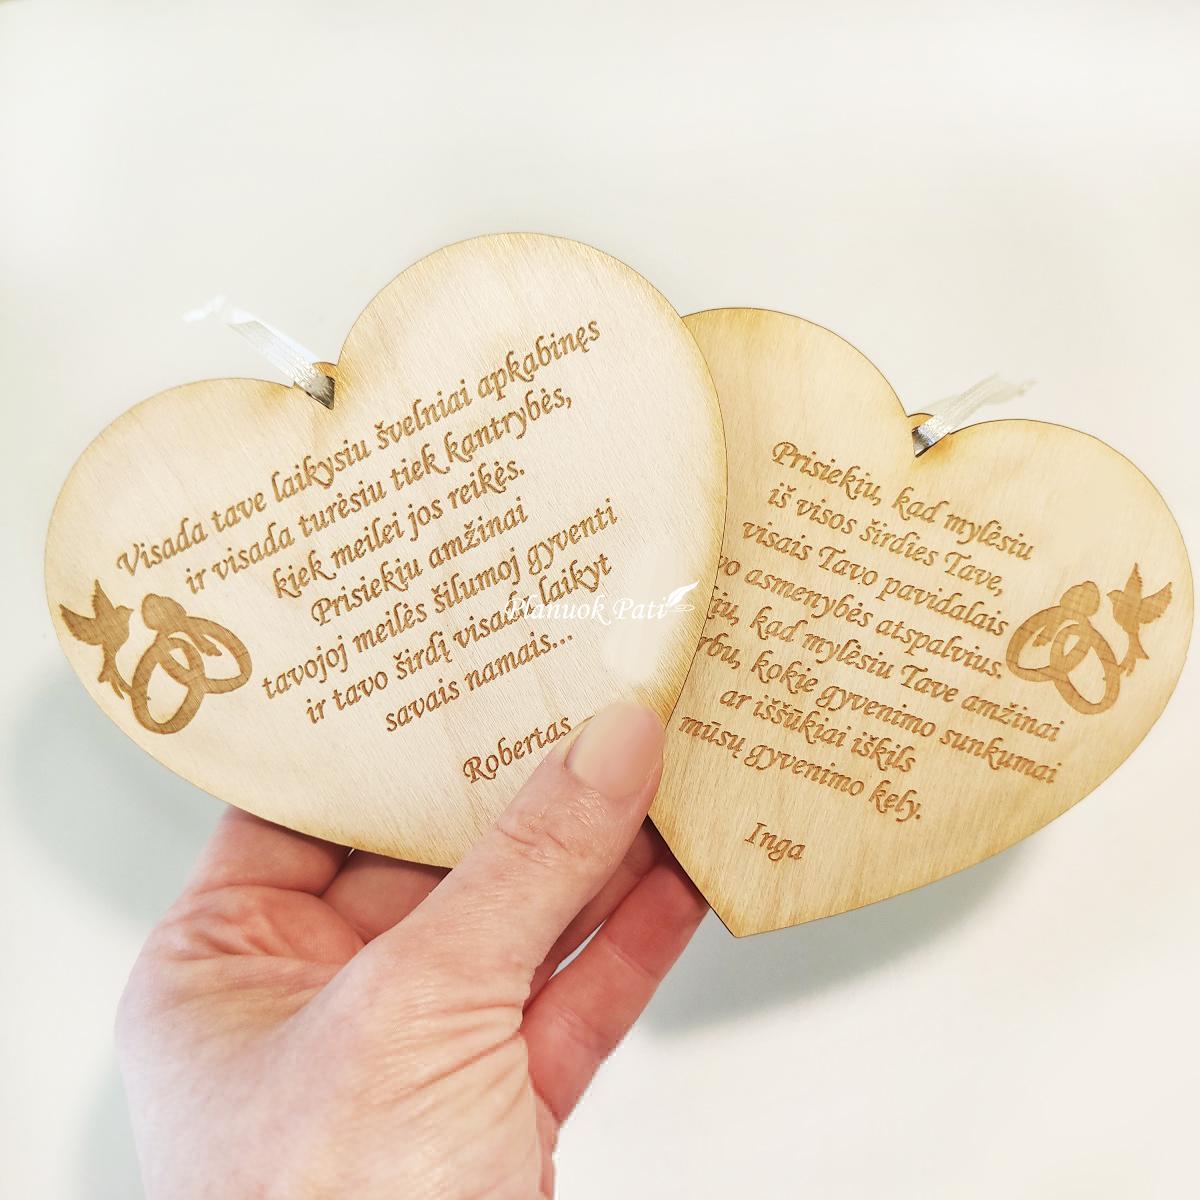 Visada tave laikysiu švelniai apkabinęs
ir visada turėsiu tiek kantrybės,
kiek meilei jos reikės.
Prisiekiu amžinai
tavojoj meilės šilumoj gyventi
ir tavo širdį visada laikyt
savais namais...
Robertas
Planuok Pati
Prisiekiu, kad mylėsiu
iš visos širdies Tave,
visais Tavo pavidalais
asmenybės atspalvius.
kad mylėsiu Tave amžinai
kokie gyvenimo sunkumai
ar iššūkiai iškils
mūsų gyvenimo kely.
Inga